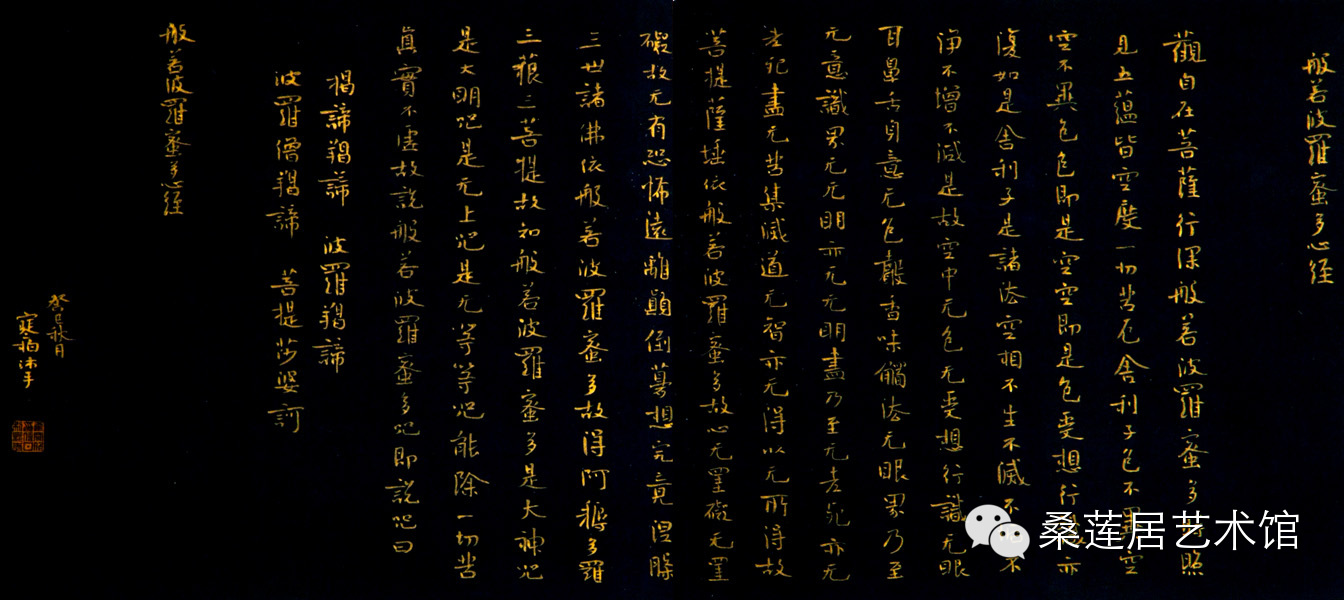 般若波羅蜜多心経
觀自在菩薩行深般若波羅蜜多時照
見五蘊皆空度一切苦厄舍利子色不異空
空不異色色即是空空即是色受想行識亦
復如是舍利子是諸法空相不生不滅不垢不
淨不增不減是故空中无色无受想行識无眼
耳鼻舌身意无色聲香味觸法无眼界乃至
无意識界无无明亦无无明盡乃至无老死亦无
老死盡无苦集滅道无智亦无得以无所得故
菩提薩埵依般若波羅蜜多故心无罣礙无罣
礙故无有恐怖遠離顛倒夢想究竟涅槃
三世諸佛依般若波羅蜜多故得阿耨多羅
三藐三菩提故知般若波羅蜜多是大神咒
是大明咒是无上咒是无等等咒能除一切苦
真實不虛故說般若波羅蜜多咒即說咒曰
揭諦羯諦 波羅羯諦
波羅僧羯諦 菩提莎婆訶
般若波羅蜜多心経
癸巳秋月
寒柏沐手
桑莲居艺术馆